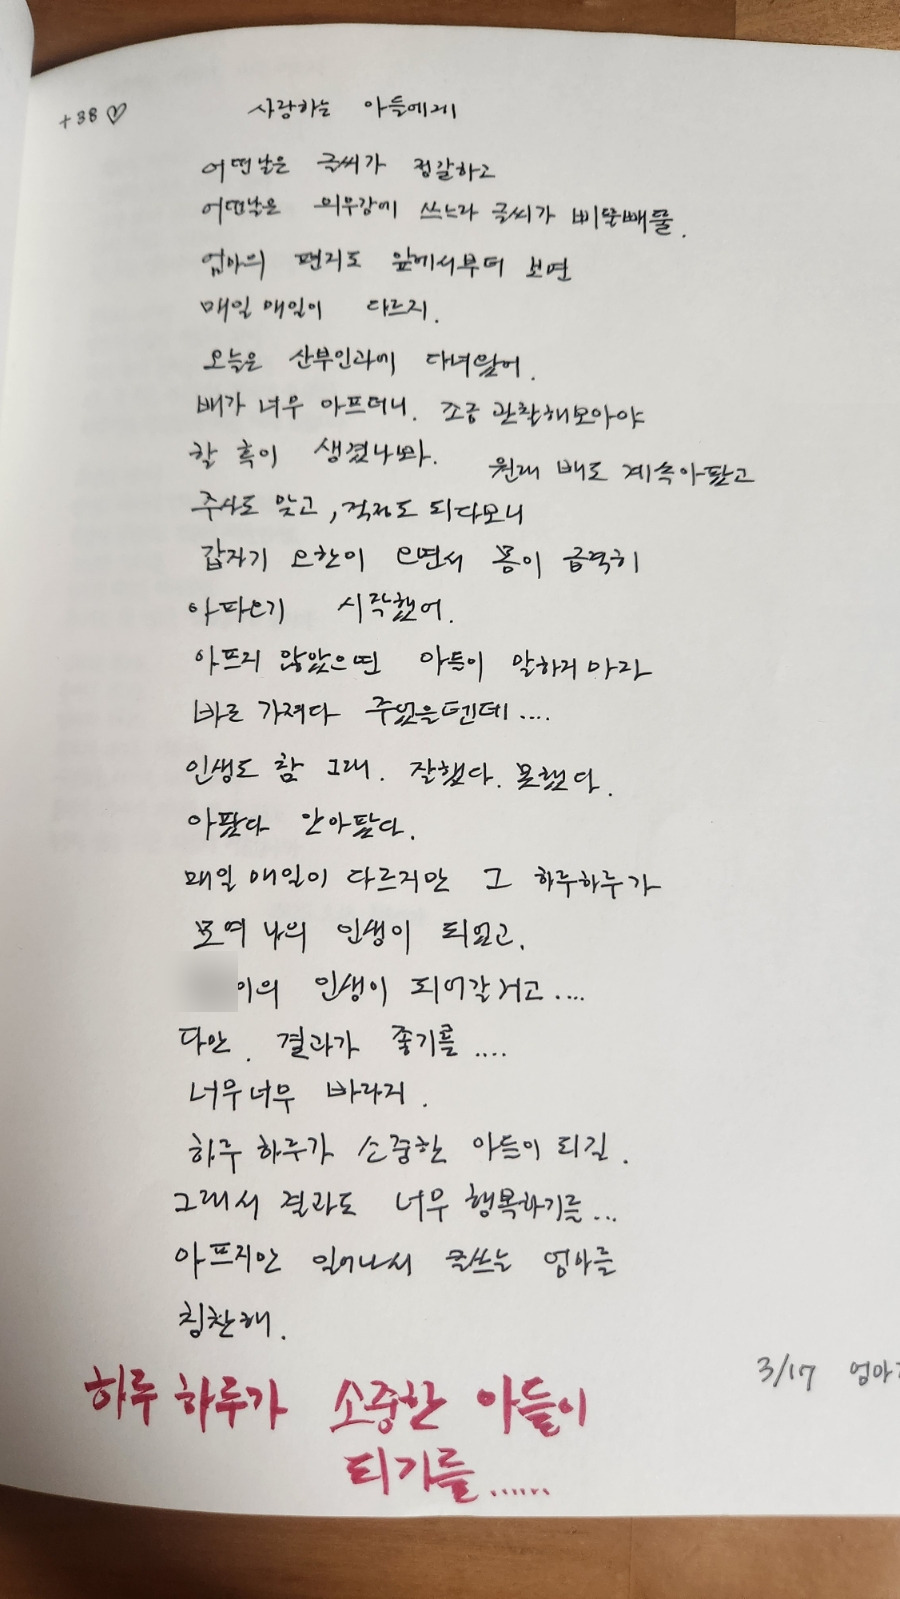 +38♡
사랑하는 아들에게
어떤날은 글씨가 정갈하고
어떤날은 의무감에 쓰느라 글씨가 삐뚤빼뚤.
엄마의 편지도 앞에서부터 보면
매일 매일이 다르지.
오늘은 산부인과에 다녀왔어.
배가 너무 아프더니. 조금 관찰해보아야
할 혹이 생겼나봐. 원래 배도 계속아팠고
주사도 맞고, 걱정도 되다보니
갑자기 오한이 오면서 몸이 급격히
아파오기 시작했어.
아프지 않았으면 아들이 말하지 마자
바로 가져다 주었을텐데....
인생도 참 그래. 잘했다. 못했다.
아팠다 안아팠다.
매일 매일이 다르지만 그 하루하루가
모여 나의 인생이 되었고,
이의 인생이 되어갈거고....
다만. 결과가 좋기를....
너무너무 바라지.
하루 하루가 소중한 아들이 되길.
그래서 결과도 너무 행복하기를...
아프지만 일어나서 글쓰는 엄마를
칭찬해.
3/17 엄마가
하루 하루가 소중한 아들이
되기를......